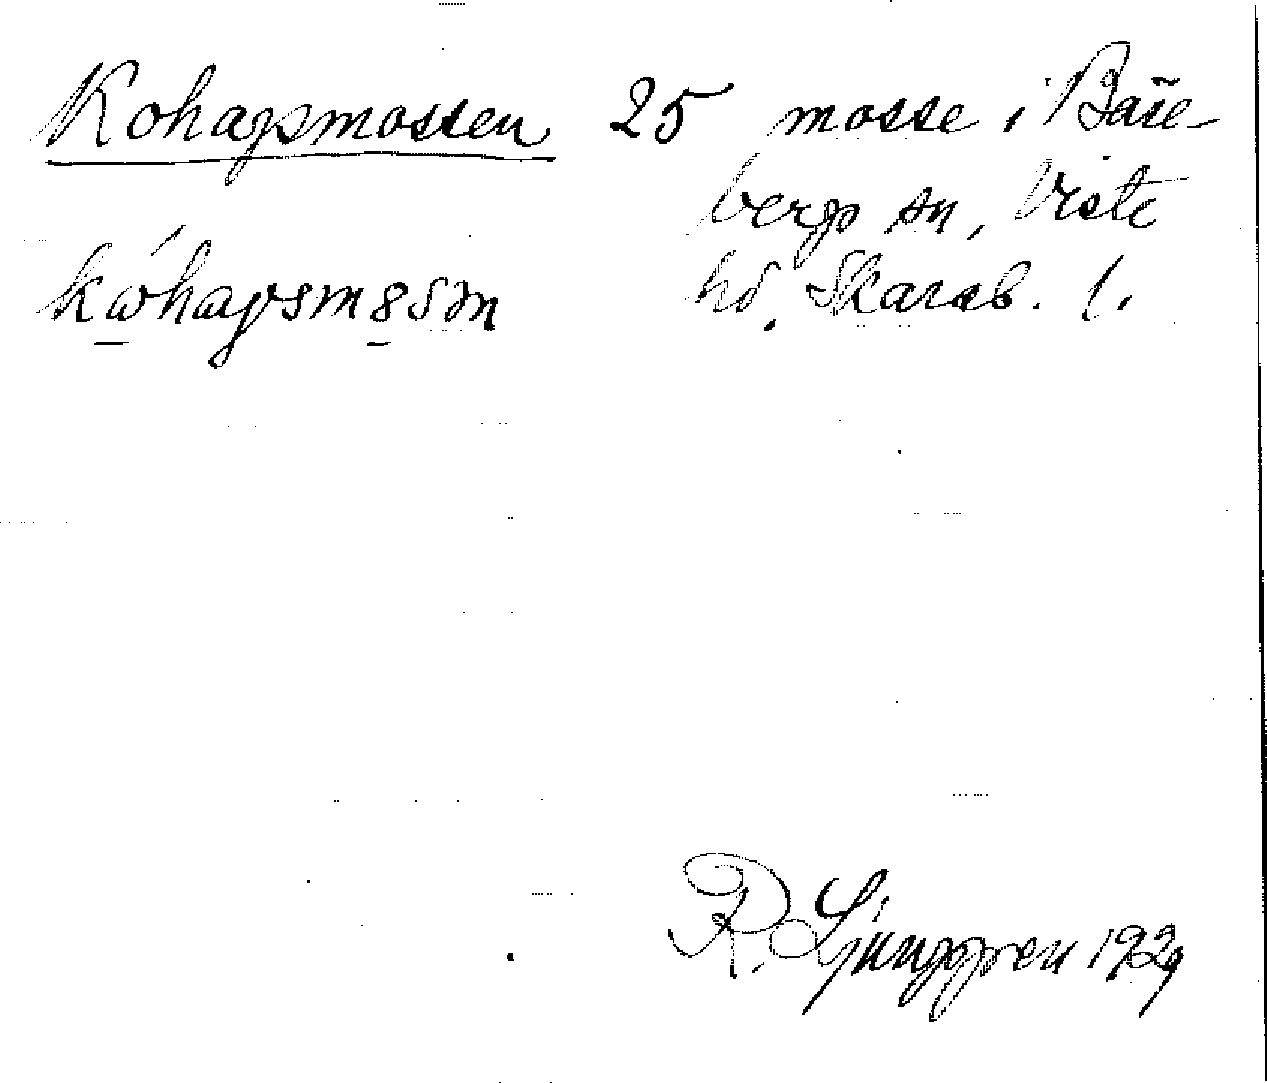 Kohagsmossen 25 mosse i Bäre-
bergs sn, Viste
hd. Skarab. l.
R. Ljunggren 1929